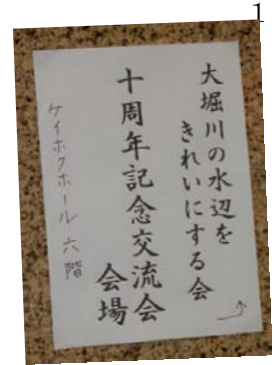 1
大堀川の水辺を
きれいにする会
十周年記念交流会
会場
ケイホクホール 六階